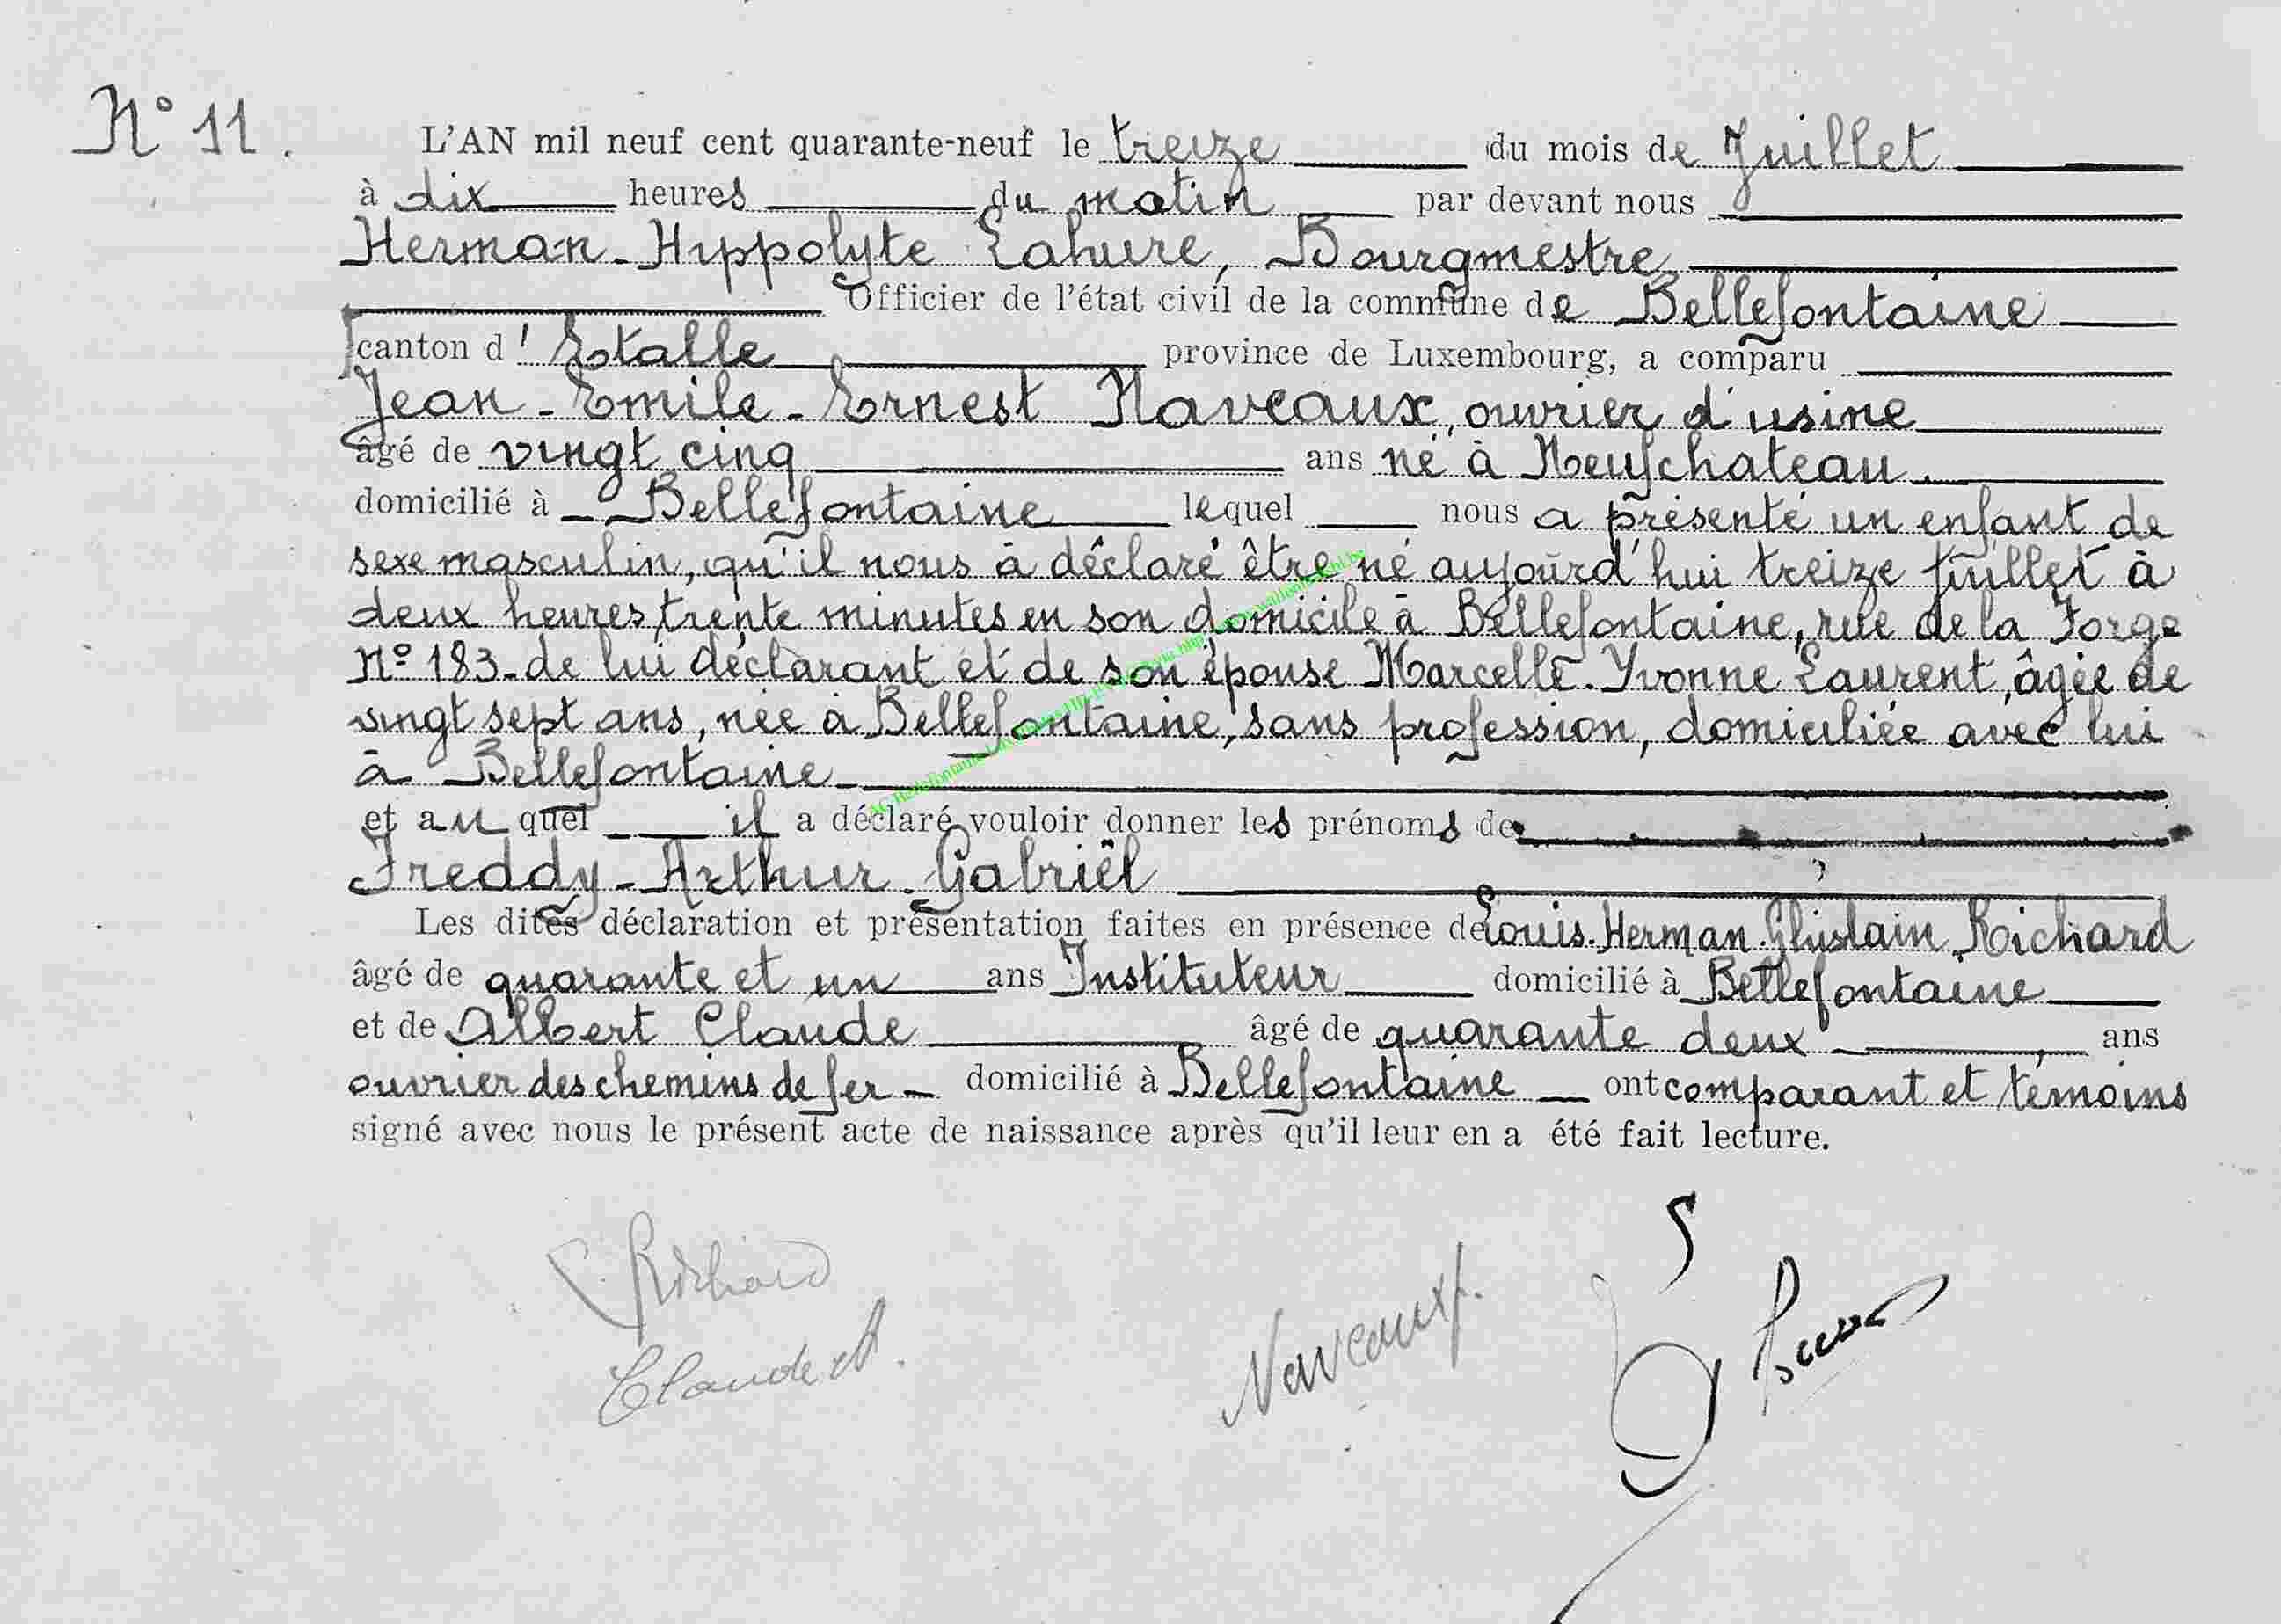 N° 11.
L'AN mil neuf cent quarante-neuf le treize du mois de Juillet
à dix heures du matin par devant nous
Herman-Hippolyte Lahure, Bourgmestre
Officier de l'état civil de la commune de Bellefontaine
canton d'Etalle province de Luxembourg, a comparu
Jean-Emile-Ernest Naveaux, ouvrier d'usine
âgé de vingt cinq ans né à Neufchateau.
domicilié à Bellefontaine lequel nous a présenté un enfant de
sexe masculin, qu'il nous à déclaré être né aujourd'hui treize juillet à
deux heures trente minutes en son domicile à Bellefontaine, rue de la Forge
N° 183-de lui déclarant et de son épouse Marcelle-Yvonne Laurent, âgée de
vingt sept ans, née à Bellefontaine, sans profession, domiciliée avec lui
à Bellefontaine
et au quel il a déclaré vouloir donner les prénoms de
Freddy-Arthur-Gabriël
Les dites déclaration et présentation faites en présence de Louis-Herman-Ghislain Richard
âgé de quarante et un ans Instituteur domicilié à Bellefontaine
et de Albert Claude âgé de quarante deux, ans
ouvrier des chemins de fer - domicilié à Bellefontaine ont comparant et témoins
signé avec nous le présent acte de naissance après qu'il leur en a été fait lecture.
Richard
Claude A.
Naveaux